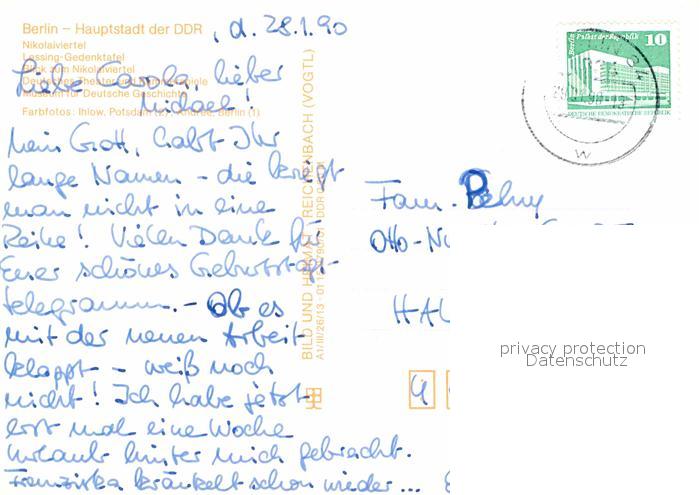 Berlin – Hauptstadt der DDR
, d. 28.1.90
Nikolaiviertel
Lessing-Gedenktafel
Blick zum Nikolaiviertel
Deutsches Theater und Kammerspiele
Museum für Deutsche Geschichte
Farbfotos: Ihlow, Potsdam (2), Andree, Berlin (1)
Liebe Carola, lieber
Michael!
Mein Gott, habt Ihr
lange Namen – die kriegt
man nicht in eine
Reihe! Vielen Dank für
Euer schönes Geburtstags-
telegramm. – Ob es
mit der neuen Arbeit
klappt – weiß noch
nicht! Ich habe jetzt
erst mal eine Woche
Urlaub hinter mich gebracht.
Franziska kränkelt schon wieder ...
BILD UND HEIMAT REICHENBACH (VOGTL)
A1/III/26/13
Berlin, Palast der Republik
10
DEUTSCHE DEMOKRATISCHE REPUBLIK
W
Fam.
Otto-Nu
HAL
4
privacy protection
Datenschutz